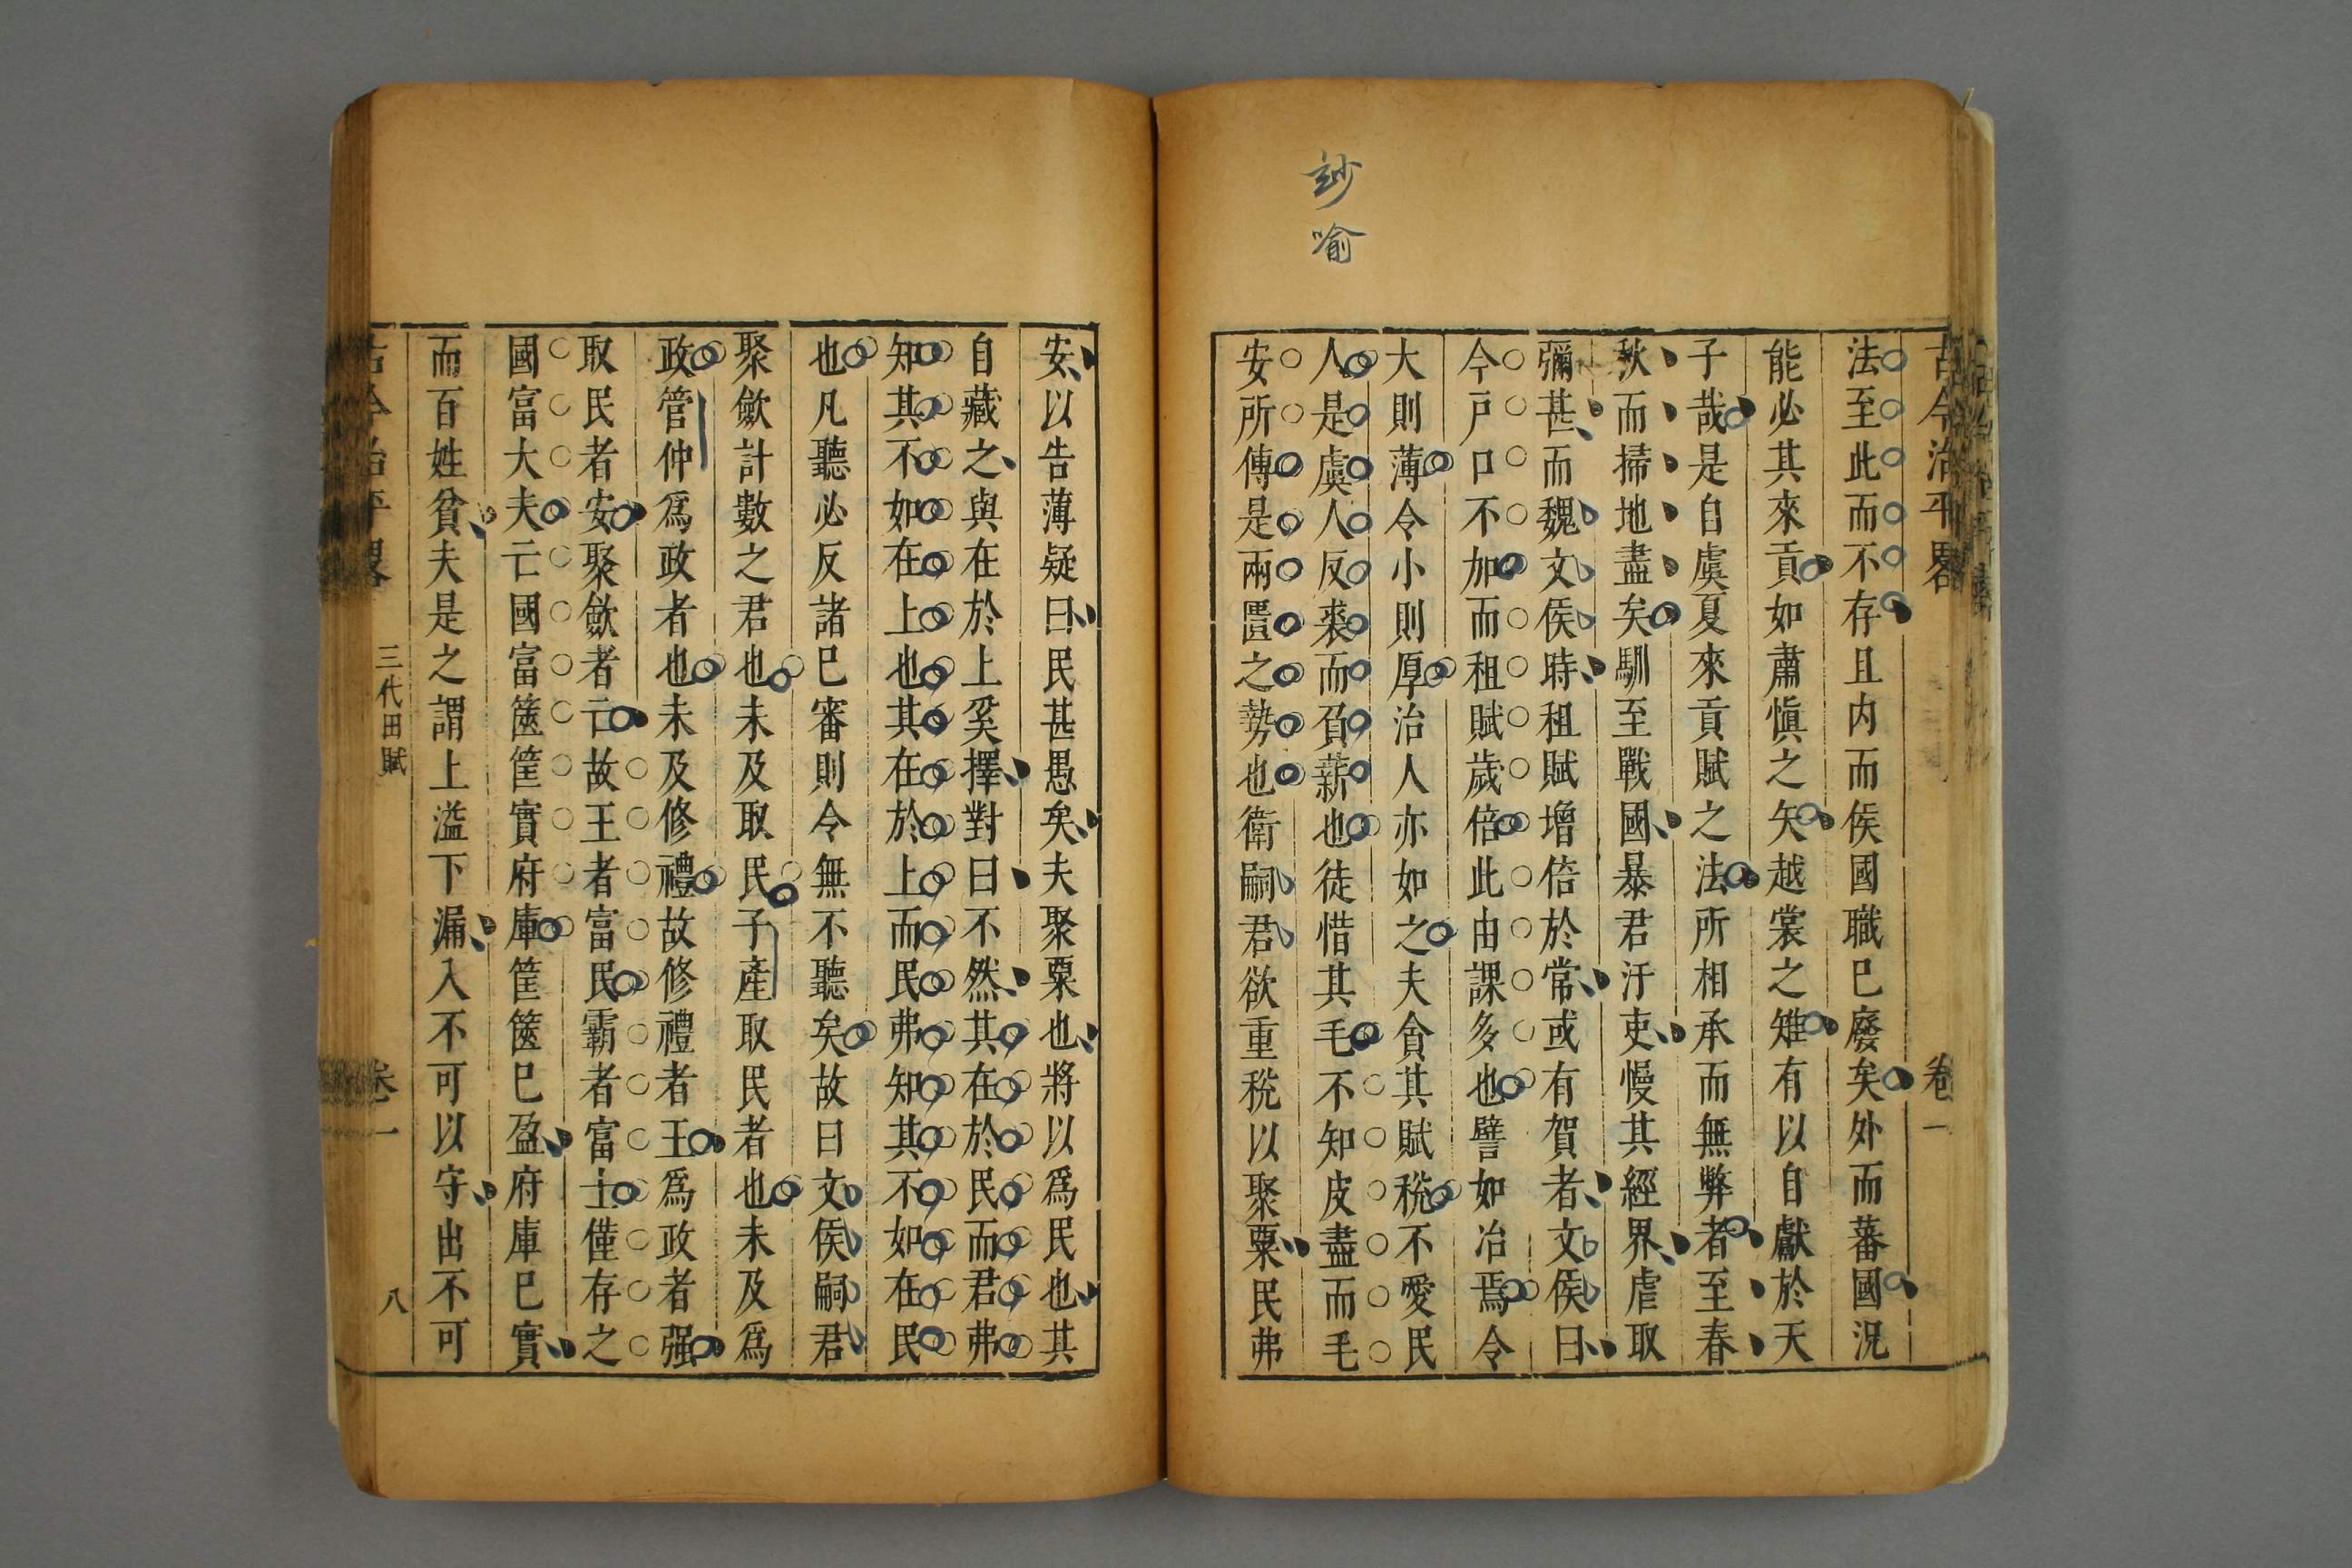 玅喻
古今治平畧 卷一
法至此而不存且内而侯國職已廢矣外而蕃國況
能必其來貢如肅慎之矢越裳之雉有以自獻於天
子哉是自虞夏來貢賦之法所相承而無弊者至春
秋而掃地盡矣馴至戰國暴君汙吏慢其經界虐取
彌甚而魏文侯時租賦增倍於常或有賀者文侯曰
今戸口不加而租賦歲倍此由課多也譬如冶焉令
大則薄令小則厚治人亦如之夫貪其賦稅不愛民
人是虞人反裘而負薪也徒惜其毛不知皮盡而毛
安所傳是兩匱之勢也衛嗣君欲重稅以聚粟民弗
安以告薄疑曰民甚愚矣夫聚粟也將以爲民也其
自藏之與在於上奚擇對曰不然其在於民而君弗
知其不如在上也其在於上而民弗知其不如在民
也凡聽必反諸已審則令無不聽矣故曰文侯嗣君
聚歛計數之君也未及取民子產取民者也未及爲
政管仲爲政者也未及修禮故修禮者王爲政者强
取民者安聚歛者亡故王者富民霸者富士僅存之
國富大夫亡國富篋筐實府庫筐篋已盈府庫已實
而百姓貧夫是之謂上溢下漏入不可以守出不可
古今治平畧 三代田賦 卷一 八